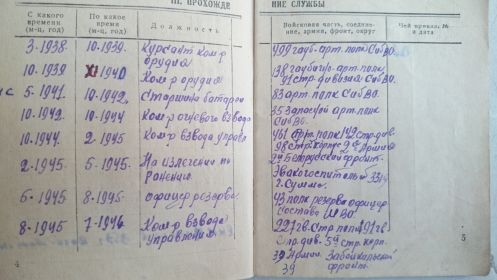 III. ПРОХОЖДЕ
С какого времени (м-ц, год)
По какое время (м-ц, год)
Должность
3-1938 10-1939 Курсант ком-р орудия
10.1939 XI 1940 Ком-р орудия
5-1941 10-1942 Старшина батареи
10-1942 10-1944 Ком-р огневого взвода
10-1944 2-1945 Ком-р взвода управл
2-1945 5-1945 На излечении по ранению.
5-1945 8-1945 Офицер резерва
8-1945 7-1946 Ком-р взвода управления
4
НИЕ СЛУЖБЫ
Войсковая часть, соедине-
ние, армия, фронт, округ
Чей приказ, №
и дата
409 гауб. арт. полк СибВО.
138 гаубичн. арт. полк
91 стр. дивизия СибВО.
83 арт. полк СибВО
35 запасной арт. полк
СибВО.
461 арт. полк 142 стр. див.
98 стр. корпус 2 Армия
2й Белорусский фронт.
Эвакогоспиталь 334
43 полк резерва офицер
состава
221 гв. стр. полк
стр. див. 5 стр. корп.
39 Армия Забайкальский
39 фронт.
5